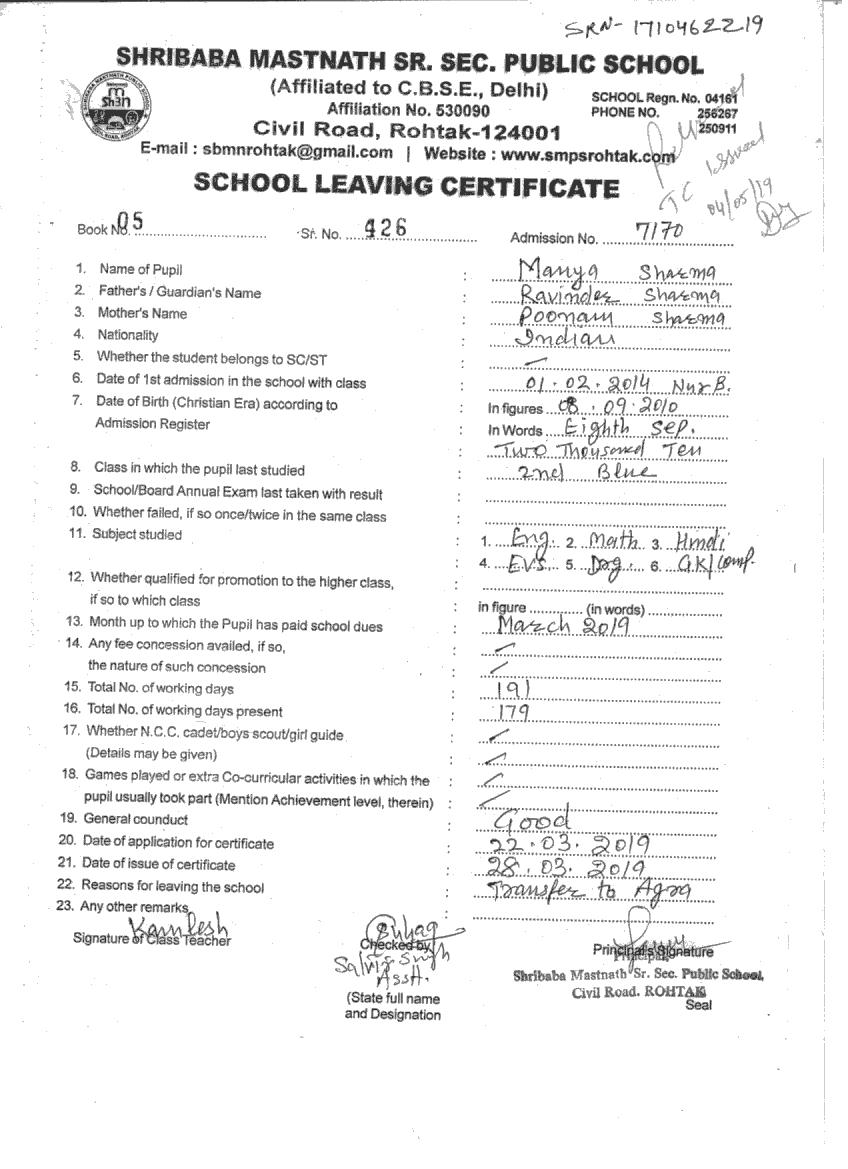 SRN- 1710462219
SHRIBABA MASTNATH SR. SEC. PUBLIC SCHOOL
(Affiliated to C.B.S.E., Delhi)
Affiliation No. 530090
SCHOOL Regn. No. 04161
PHONE NO. 256267
250911
Civil Road, Rohtak-124001
E-mail : sbmnrohtak@gmail.com | Website : www.smpsrohtak.com
TC issued
04/05/19
SCHOOL LEAVING CERTIFICATE
Book No. 05 Sr. No. 426 Admission No. 7170
1. Name of Pupil : Manya Sharma
2. Father's / Guardian's Name : Ravinder Sharma
3. Mother's Name : Poonam Sharma
4. Nationality : Indian
5. Whether the student belongs to SC/ST : —
6. Date of 1st admission in the school with class : 01.02.2014 Nur B.
7. Date of Birth (Christian Era) according to : In figures 08.09.2010
Admission Register : In Words Eighth Sep.
: Two Thousand Ten
8. Class in which the pupil last studied : 2nd Blue
9. School/Board Annual Exam last taken with result :
10. Whether failed, if so once/twice in the same class :
11. Subject studied : 1. Eng. 2. Math 3. Hindi
4. EVS 5. Drg. 6. GK/Comp.
12. Whether qualified for promotion to the higher class, :
if so to which class : in figure ............. (in words) ..................
13. Month up to which the Pupil has paid school dues : March 2019
14. Any fee concession availed, if so, :
the nature of such concession :
15. Total No. of working days : 191
16. Total No. of working days present : 179
17. Whether N.C.C. cadet/boys scout/girl guide :
(Details may be given) :
18. Games played or extra Co-curricular activities in which the :
pupil usually took part (Mention Achievement level, therein) :
19. General counduct : Good
20. Date of application for certificate : 22.03.2019
21. Date of issue of certificate : 28.03.2019
22. Reasons for leaving the school : Transfer to Agra
23. Any other remarks :
Kamlesh
Signature of Class Teacher
Checked by
Singh
Asstt.
(State full name
and Designation
Principal's Signature
Principal
Shribaba Mastnath Sr. Sec. Public School,
Civil Road. ROHTAK
Seal